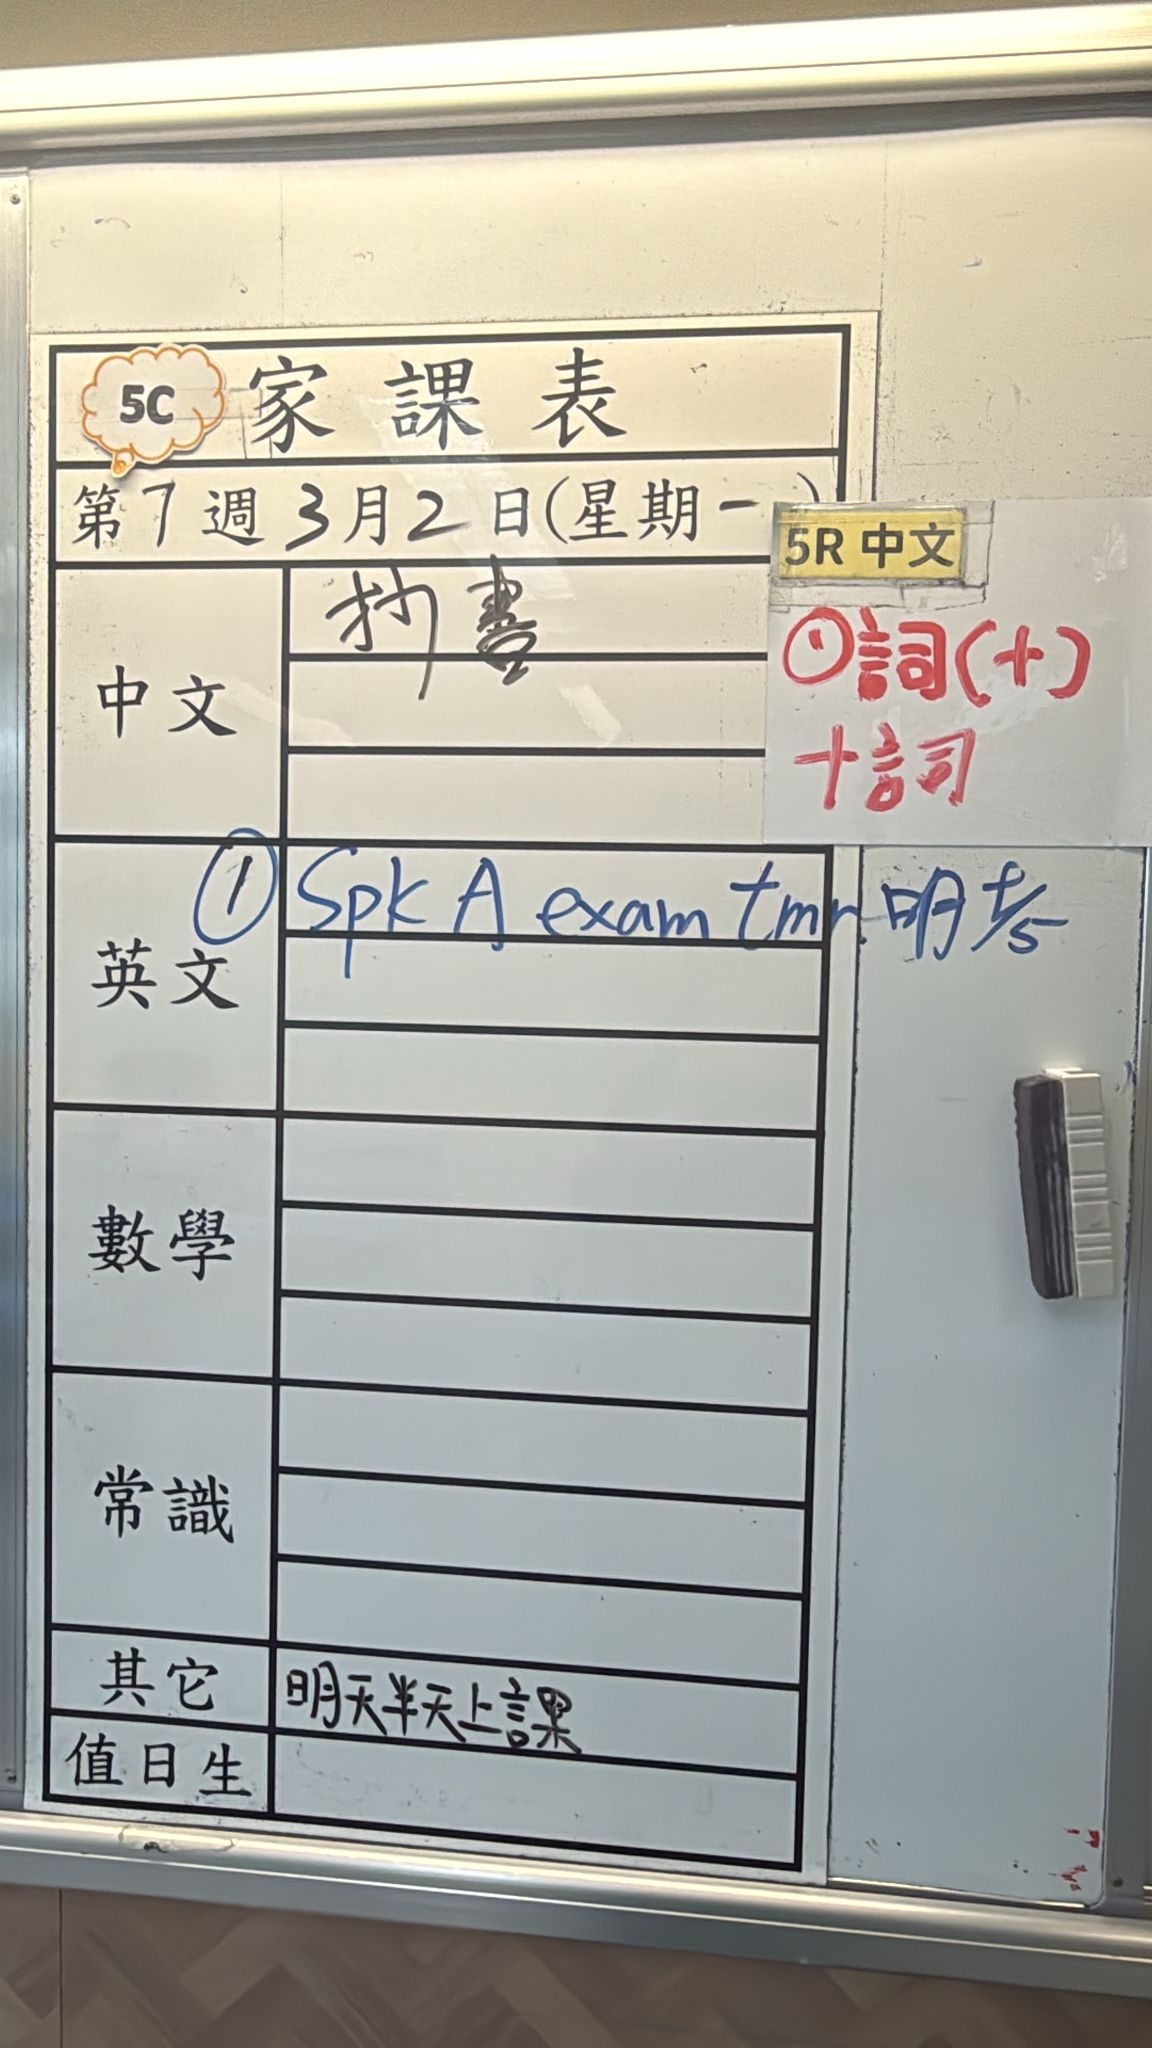 5C 家課表
第7週3月2日(星期一)
5R 中文
①詞(十)
十詞
中文
抄書
英文
① Spk A exam tmr. 明
數學
常識
其它
明天半天上課
值日生